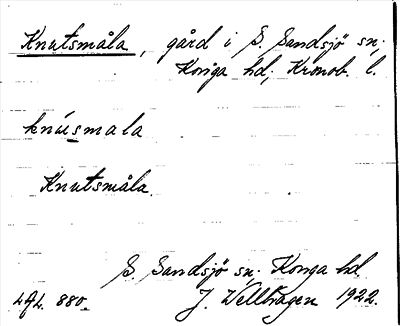 Knutsmåla, gård i S. Sandsjö sn;
Konga hd; Kronob. l.
knúsmala
Knutsmåla.
S. Sandsjö sn. Konga hd.
LAL. 880. J. Wellhagen 1922.